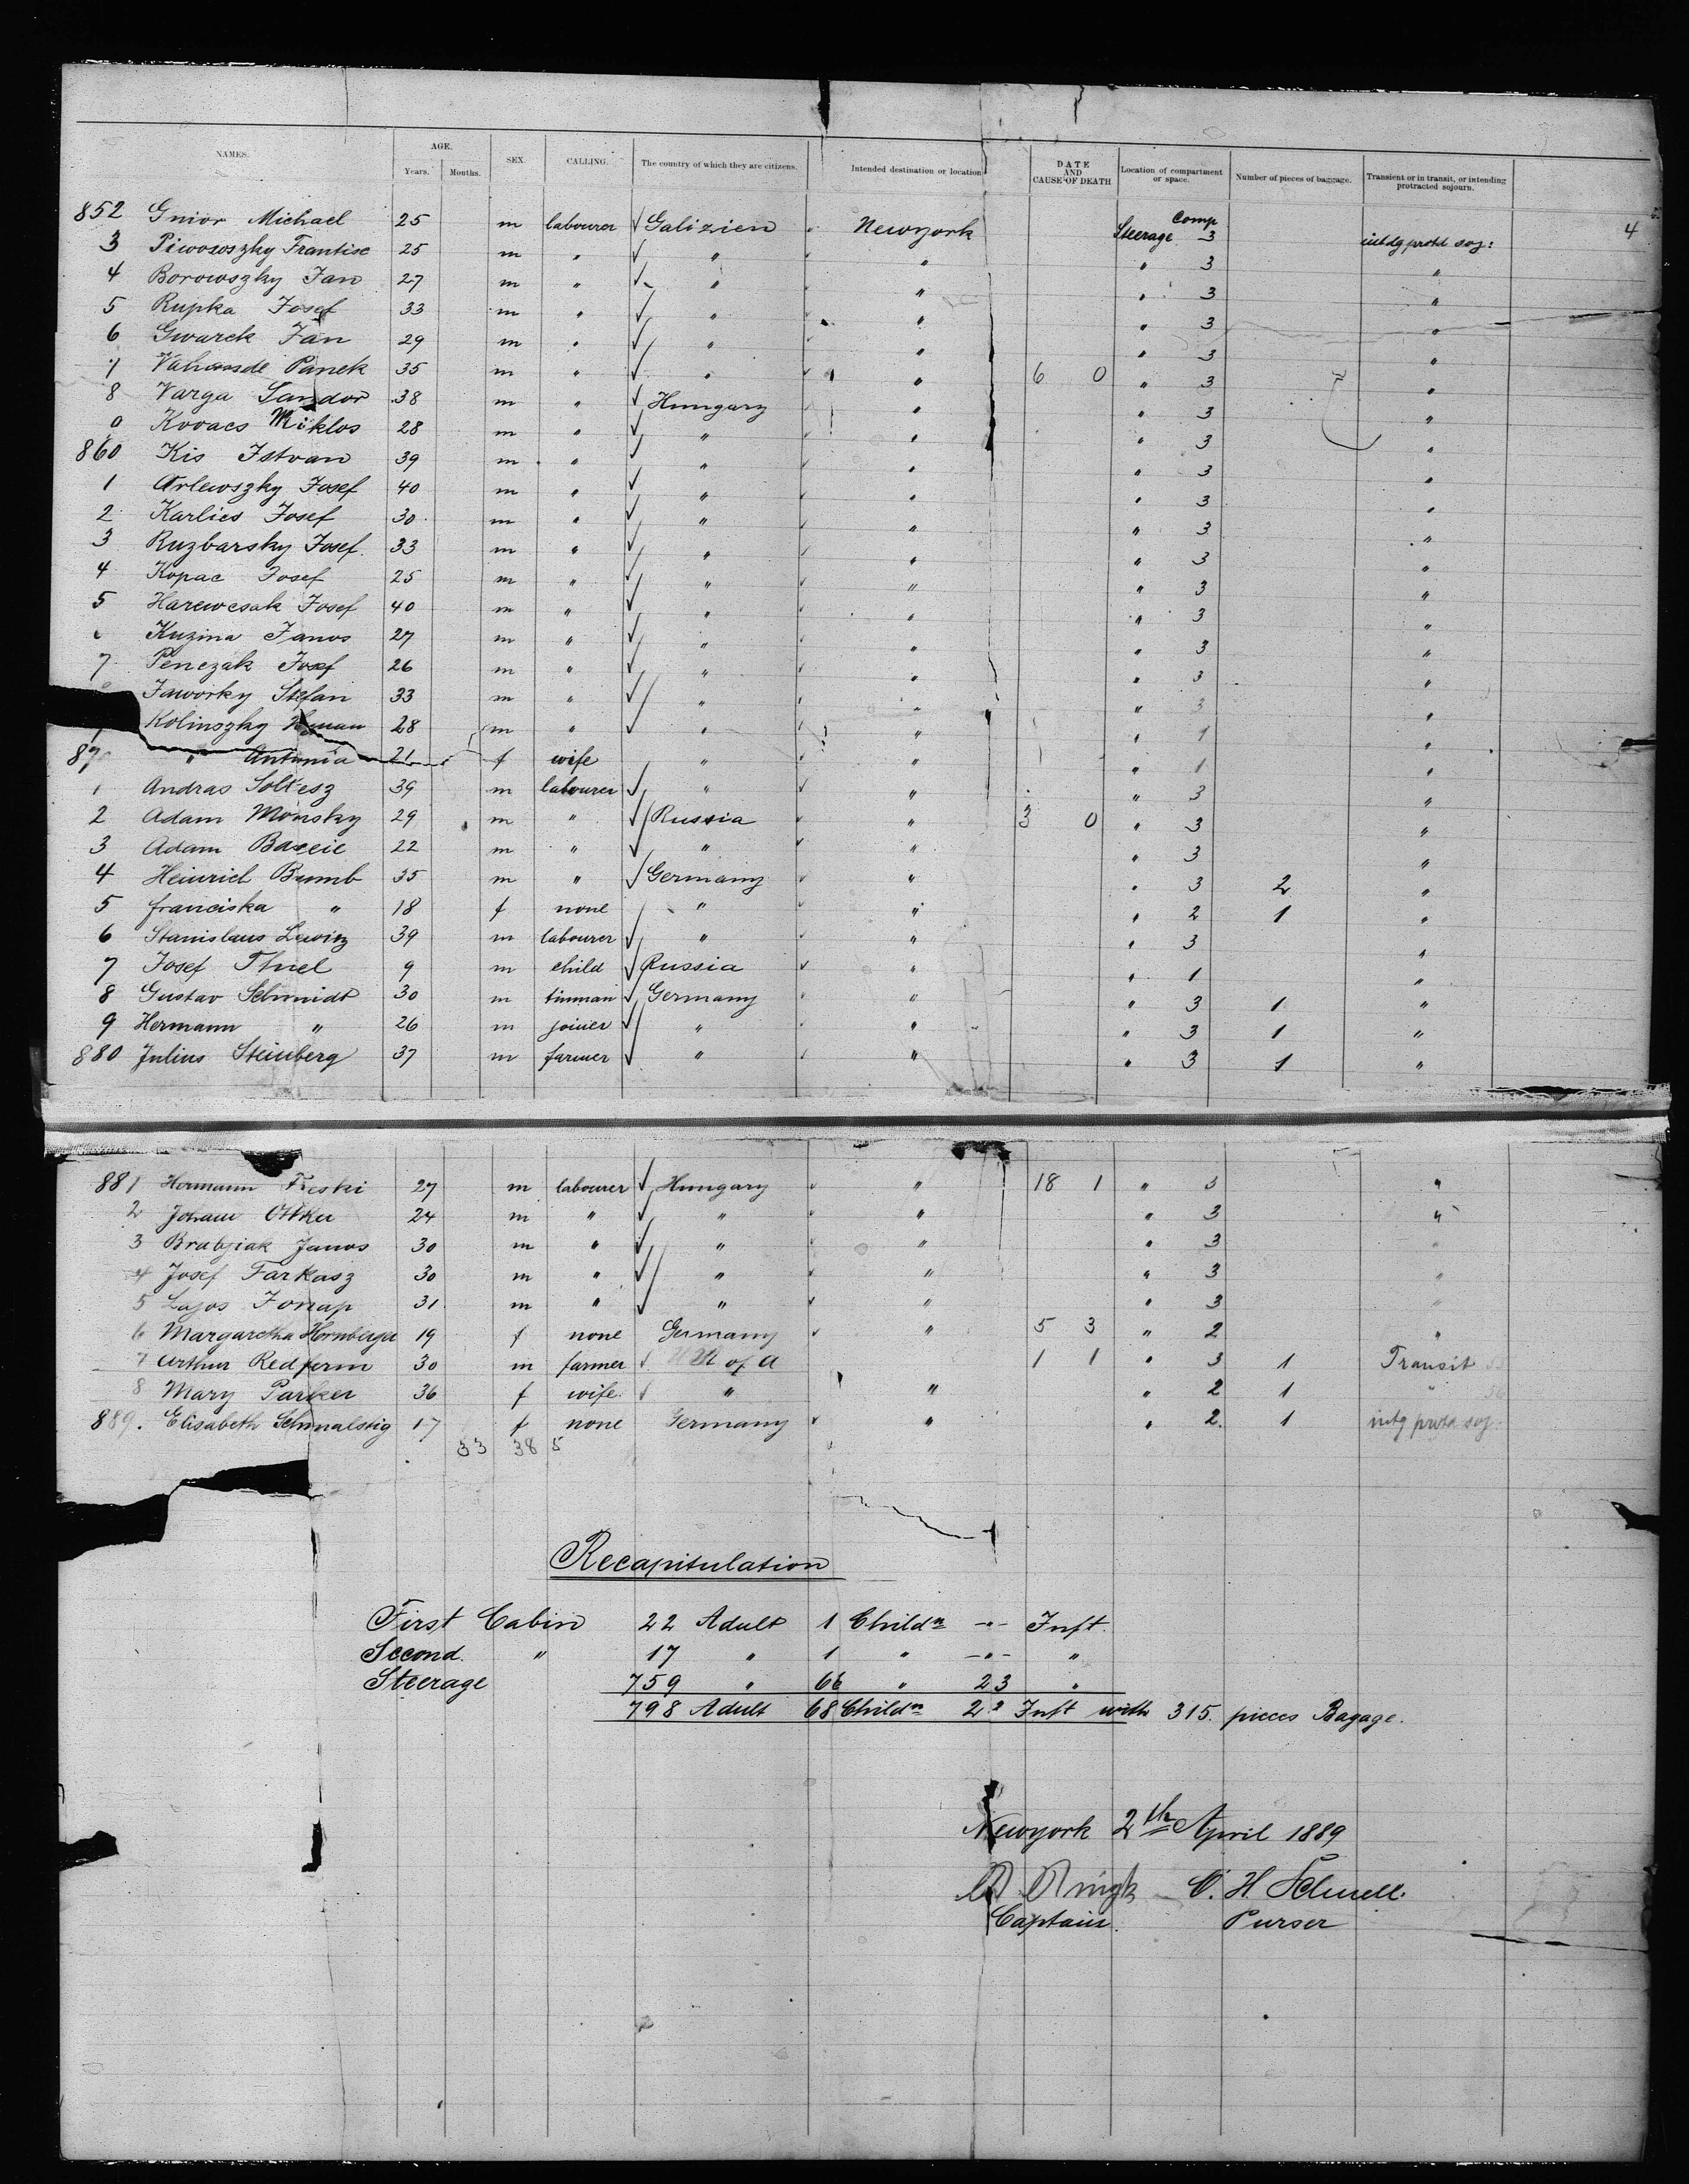 NAMES. AGE. SEX. CALLING. The country of which they are citizens. Intended destination or location DATE AND CAUSE OF DEATH Location of compartment or space. Number of pieces of baggage. Transient or in transit, or intending protracted sojourn.
Years. Months.
852 Gnior Michael 25 m labourer Galizien Newyork Steerage Comp 3 intdg protd soj: 4
3 Piwososzky Frantisc 25 m " " " " 3 "
4 Borowszky Jan 27 m " " " " 3 "
5 Rupka Josef 33 m " " " " 3 "
6 Gwarek Jan 29 m " " " " 3 "
7 Panek 35 m " " " 6 0 " 3 "
8 Varga Sandor 38 m " Hungary " " 3 "
Kovacs Miklos 28 m " " " " 3 "
860 Kis Istvan 39 m " " " " 3 "
1 Orlewszky Josef 40 m " " " " 3 "
2 Karlics Josef 30 m " " " " 3 "
3 Ruzbarsky Josef 33 m " " " " 3 "
4 Kopac Josef 25 m " " " " 3 "
5 Harewcsak Josef 40 m " " " " 3 "
Kuzina Janos 27 m " " " " 3 "
7 Penczak Josef 26 m " " " " 3 "
Jaworky Stefan 33 m " " " " 3 "
Kolinszky 28 m " " " " 1 "
870 " Antonia 21 f wife " " " 1 "
1 Andras Soltesz 39 m labourer " " " 3 "
2 Adam Monsky 29 m " Russia " 3 0 " 3 "
3 Adam 22 m " " " " 3 "
4 Heinrich Bumb 35 m " Germany " " 3 2 "
5 franciska " 18 f none " " " 2 1 "
6 Stanislaus 39 m labourer " " " 3 "
7 Josef Thiel 9 m child Russia " " 1 "
8 Gustav Schmidt 30 m tinman Germany " " 3 1 "
9 Hermann " 26 m joiner " " " 3 1 "
880 Julius Steinberg 37 m farmer " " " 3 1 "
881 Hermann 27 m labourer Hungary " 18 1 " 3 "
2 Johann 24 m " " " " 3 "
3 Brabziak Janos 30 m " " " " 3 "
4 Josef Farkasz 30 m " " " " 3 "
5 Lajos Jonap 31 m " " " " 3 "
6 Margaretha Hornberger 19 f none Germany " 5 3 " 2 "
7 Arthur Redferm 30 m farmer of A 1 1 " 3 1 Transit
8 Mary Parker 36 f wife " " " 2 1 "
889. Elisabeth Schmalstig 17 f none Germany " " 2. 1 intg protd soj.
33 38 5
Recapitulation
First Cabin 22 Adult 1 Childn -"- Inft.
Second " 17 " 1 " -"- "
Steerage 759 " 66 " 23 "
798 Adult 68 Childn 23 Inft with 315. pieces Bagage.
Newyork 2th April 1889
O. H. Schnell.
Captain. Purser